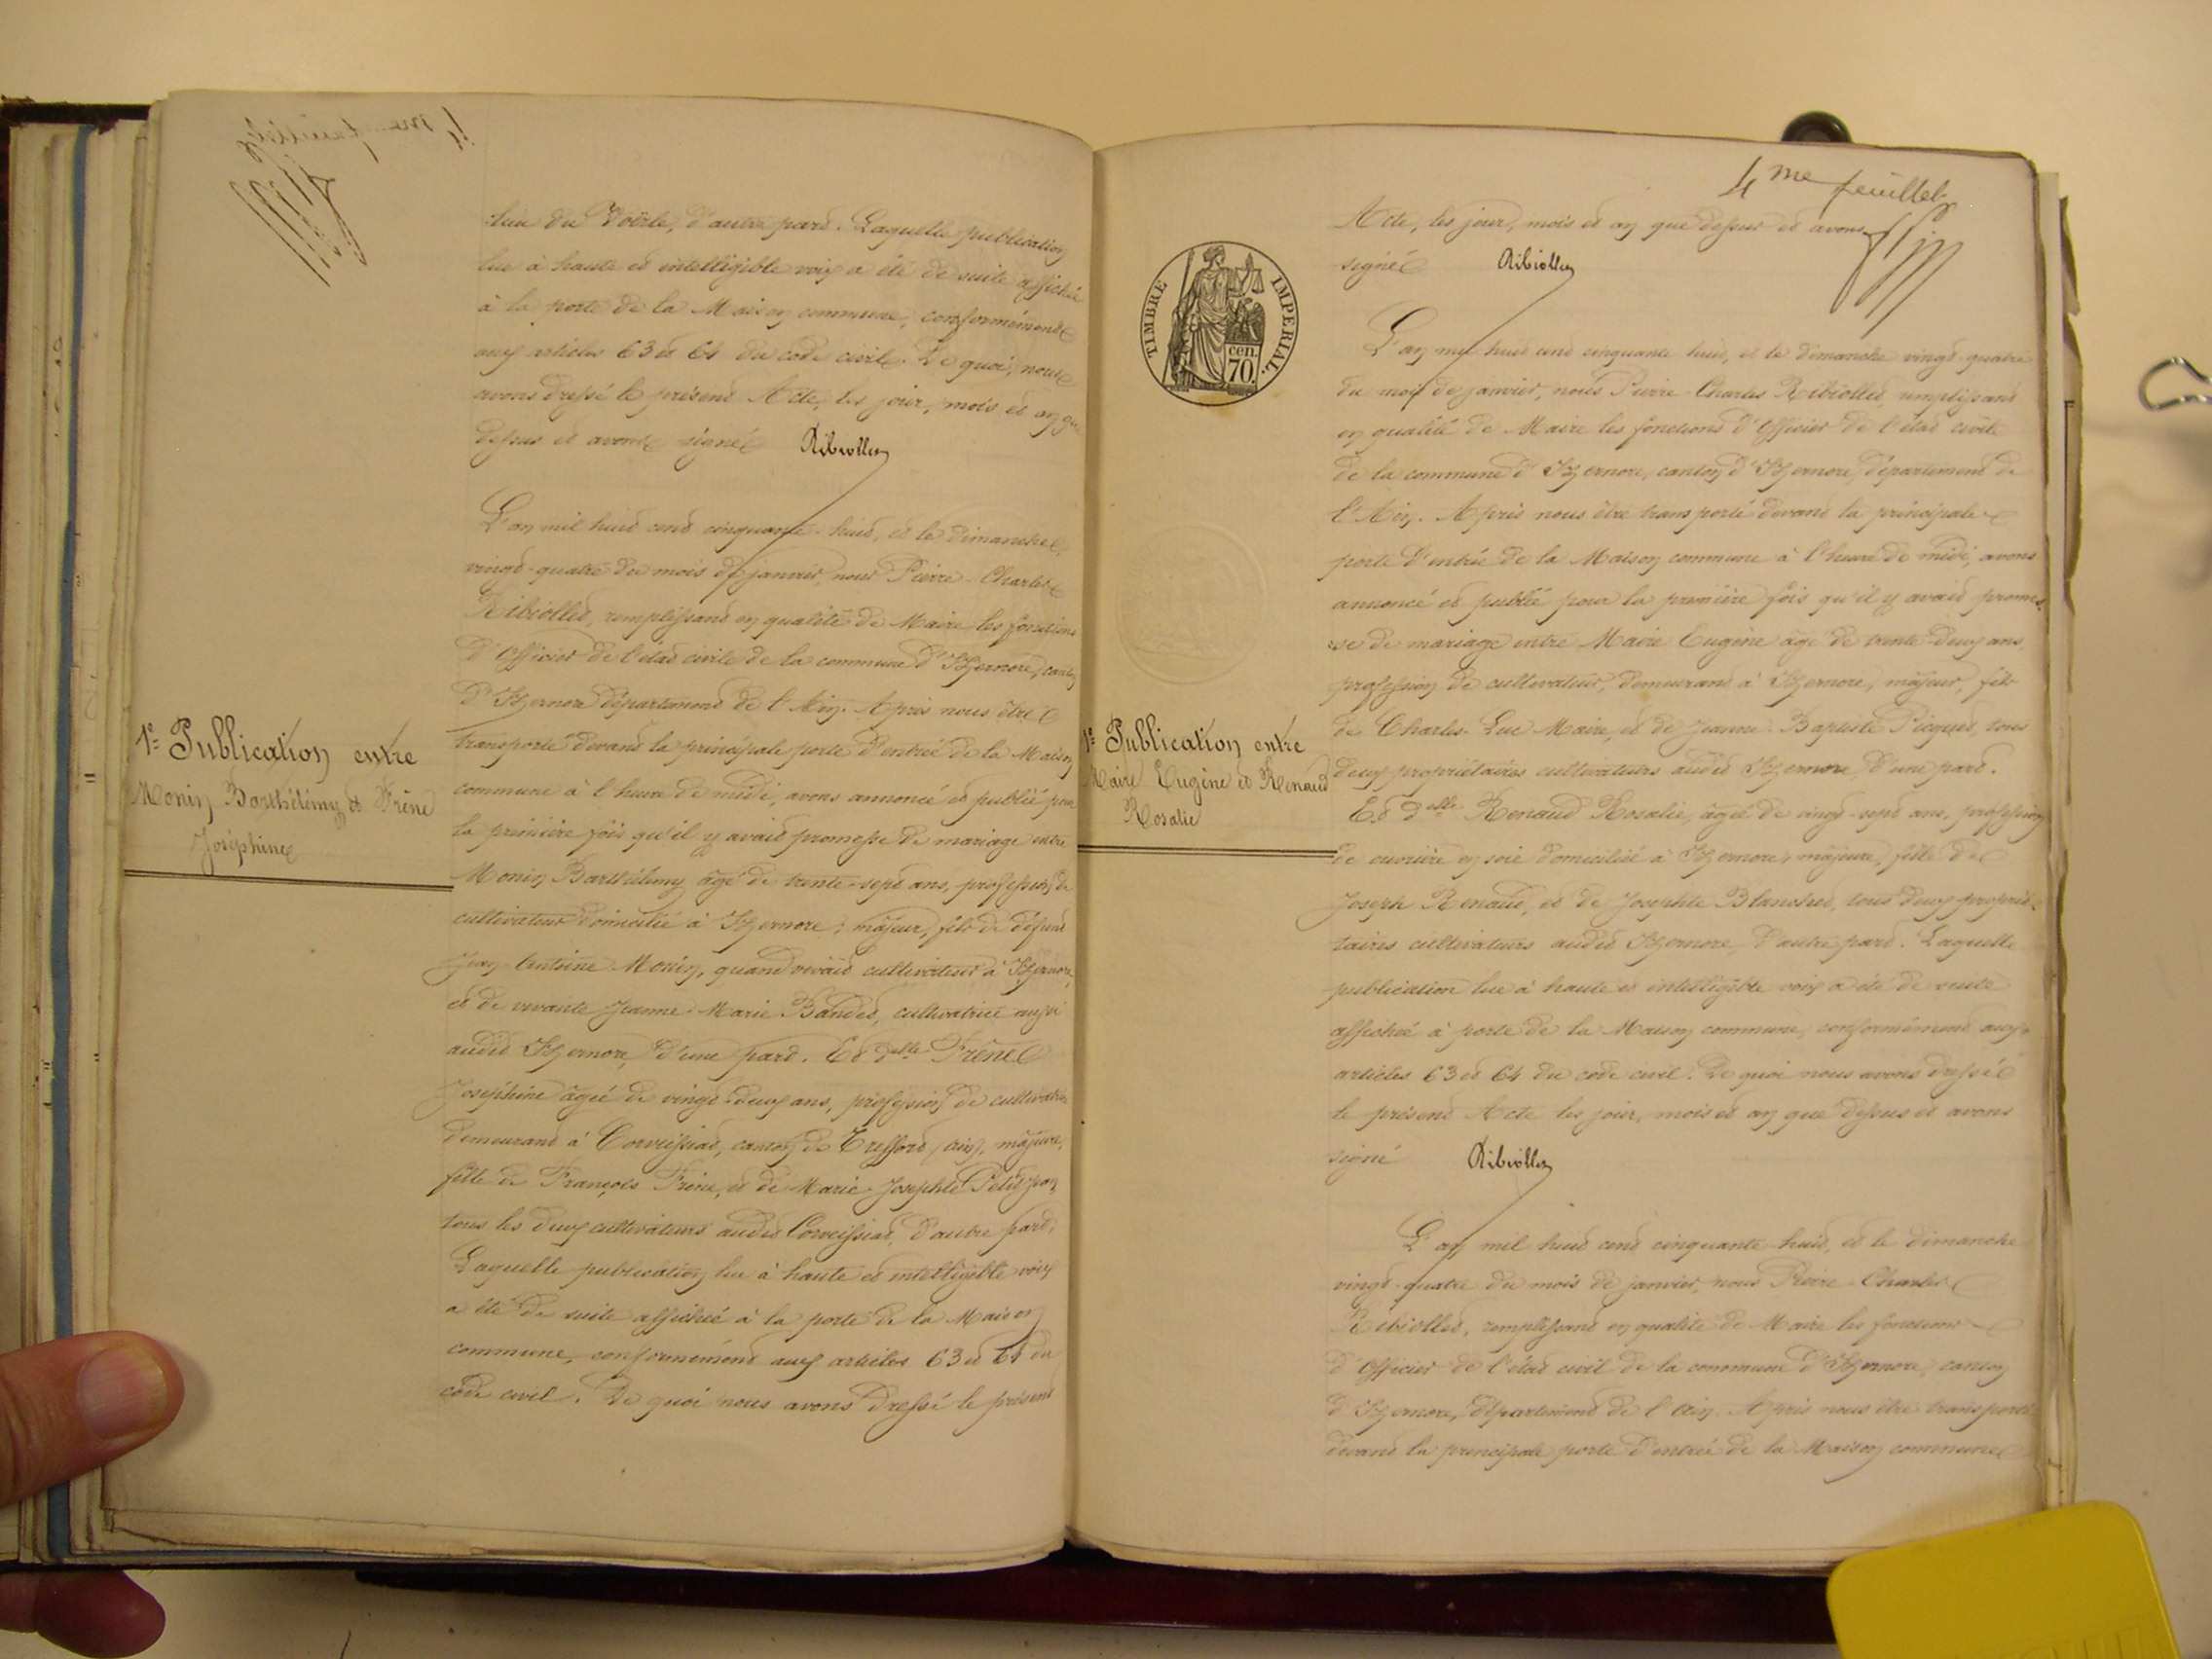 lieu du Voërle, d'autre part. Laquelle publication
lue à haute et intelligible voix a été de suite affichée
à la porte de la Maison commune, conformément
aux articles 63 et 64 du code civil. De quoi, nous
avons dressé le présent Acte, les jour, mois et an que
dessus et avons signé Ribiollet
L'an mil huit cent cinquante-huit, et le dimanche
vingt-quatre du mois de janvier, nous Pierre-Charles
Ribiollet, remplissant en qualité de Maire les fonctions
d'Officier de l'état civile de la commune d'Izernore, canton
d'Izernore département de l'Ain. Après nous être
transporté devant la principale porte d'entrée de la Maison
1e Publication entre
Monin Barthélémy et Frêne
Joséphine
commune à l'heure de midi, avons annoncé et publié pour
la première fois qu'il y avait promesse de mariage entre
Monin Barthélemy âgé de trente-sept ans, profession de
cultivateur domicilié à Izernore, majeur, fils de défunt
Jean Antoine Monin, quand vivait cultivateur à Izernore,
et de vivante Jeanne-Marie Bandet, cultivatrice aussi
audit Izernore, d'une part. Et delle Frêne
Joséphine âgée de vingt-deux ans, profession de cultivatrice
demeurant à Corveissiat, canton de Treffort (Ain), majeure,
fille de François Frêne, et de Marie-Josephte Petitjean
tous les deux cultivateurs audit Corveissiat, d'autre part.
Laquelle publication lue à haute et intelligible voix
a été de suite affichée à la porte de la Maison
commune, conformément aux articles 63 et 64 du
code civil. De quoi nous avons dressé le présent
4me feuillet
Acte, les jour, mois et an que dessus et avons
signé Ribiollet
TIMBRE IMPERIAL.
cen.
70.
L'an mil huit cent cinquante huit, et le dimanche vingt-quatre
du mois de janvier, nous Pierre-Charles Ribiollet, remplissant
en qualité de Maire les fonctions d'Officier de l'état civile
de la commune d'Izernore, canton d'Izernore, département de
l'Ain. Après nous être transporté devant la principale
porte d'entrée de la Maison commune à l'heure de midi, avons
annoncé et publié pour la première fois qu'il y avait promes-
se de mariage entre Maire Eugène âgé de trente-deux ans,
profession de cultivateur, demeurant à Izernore, majeur, fils
de Charles-Luc Maire, et de Jeanne-Baptiste Picquet, tous
1e Publication entre
Maire Eugène et Renaud
Rosalie
deux propriétaires cultivateurs audit Izernore, d'une part.
Et delle Renaud Rosalie, âgée de vingt-sept ans, profession
de ouvrière en soie domiciliée à Izernore, majeure, fille de
Joseph Renaud, et de Josephte Blanchet, tous deux proprié-
taires cultivateurs audit Izernore, d'autre part. Laquelle
publication lue à haute et intelligible voix a été de suite
affichée à porte de la Maison commune, conformément aux
articles 63 et 64 du code civil. De quoi nous avons dressé
le présent Acte les jour, mois et an que dessus et avons
signé Ribiollet
L'an mil huit cent cinquante-huit, et le dimanche
vingt-quatre du mois de janvier, nous Pierre-Charles
Ribiollet, remplissant en qualité de Maire les fonctions
d'Officier de l'état civil de la commune d'Izernore, canton
d'Izernore, département de l'Ain. Après nous être transporté
devant la principale porte d'entrée de la Maison commune